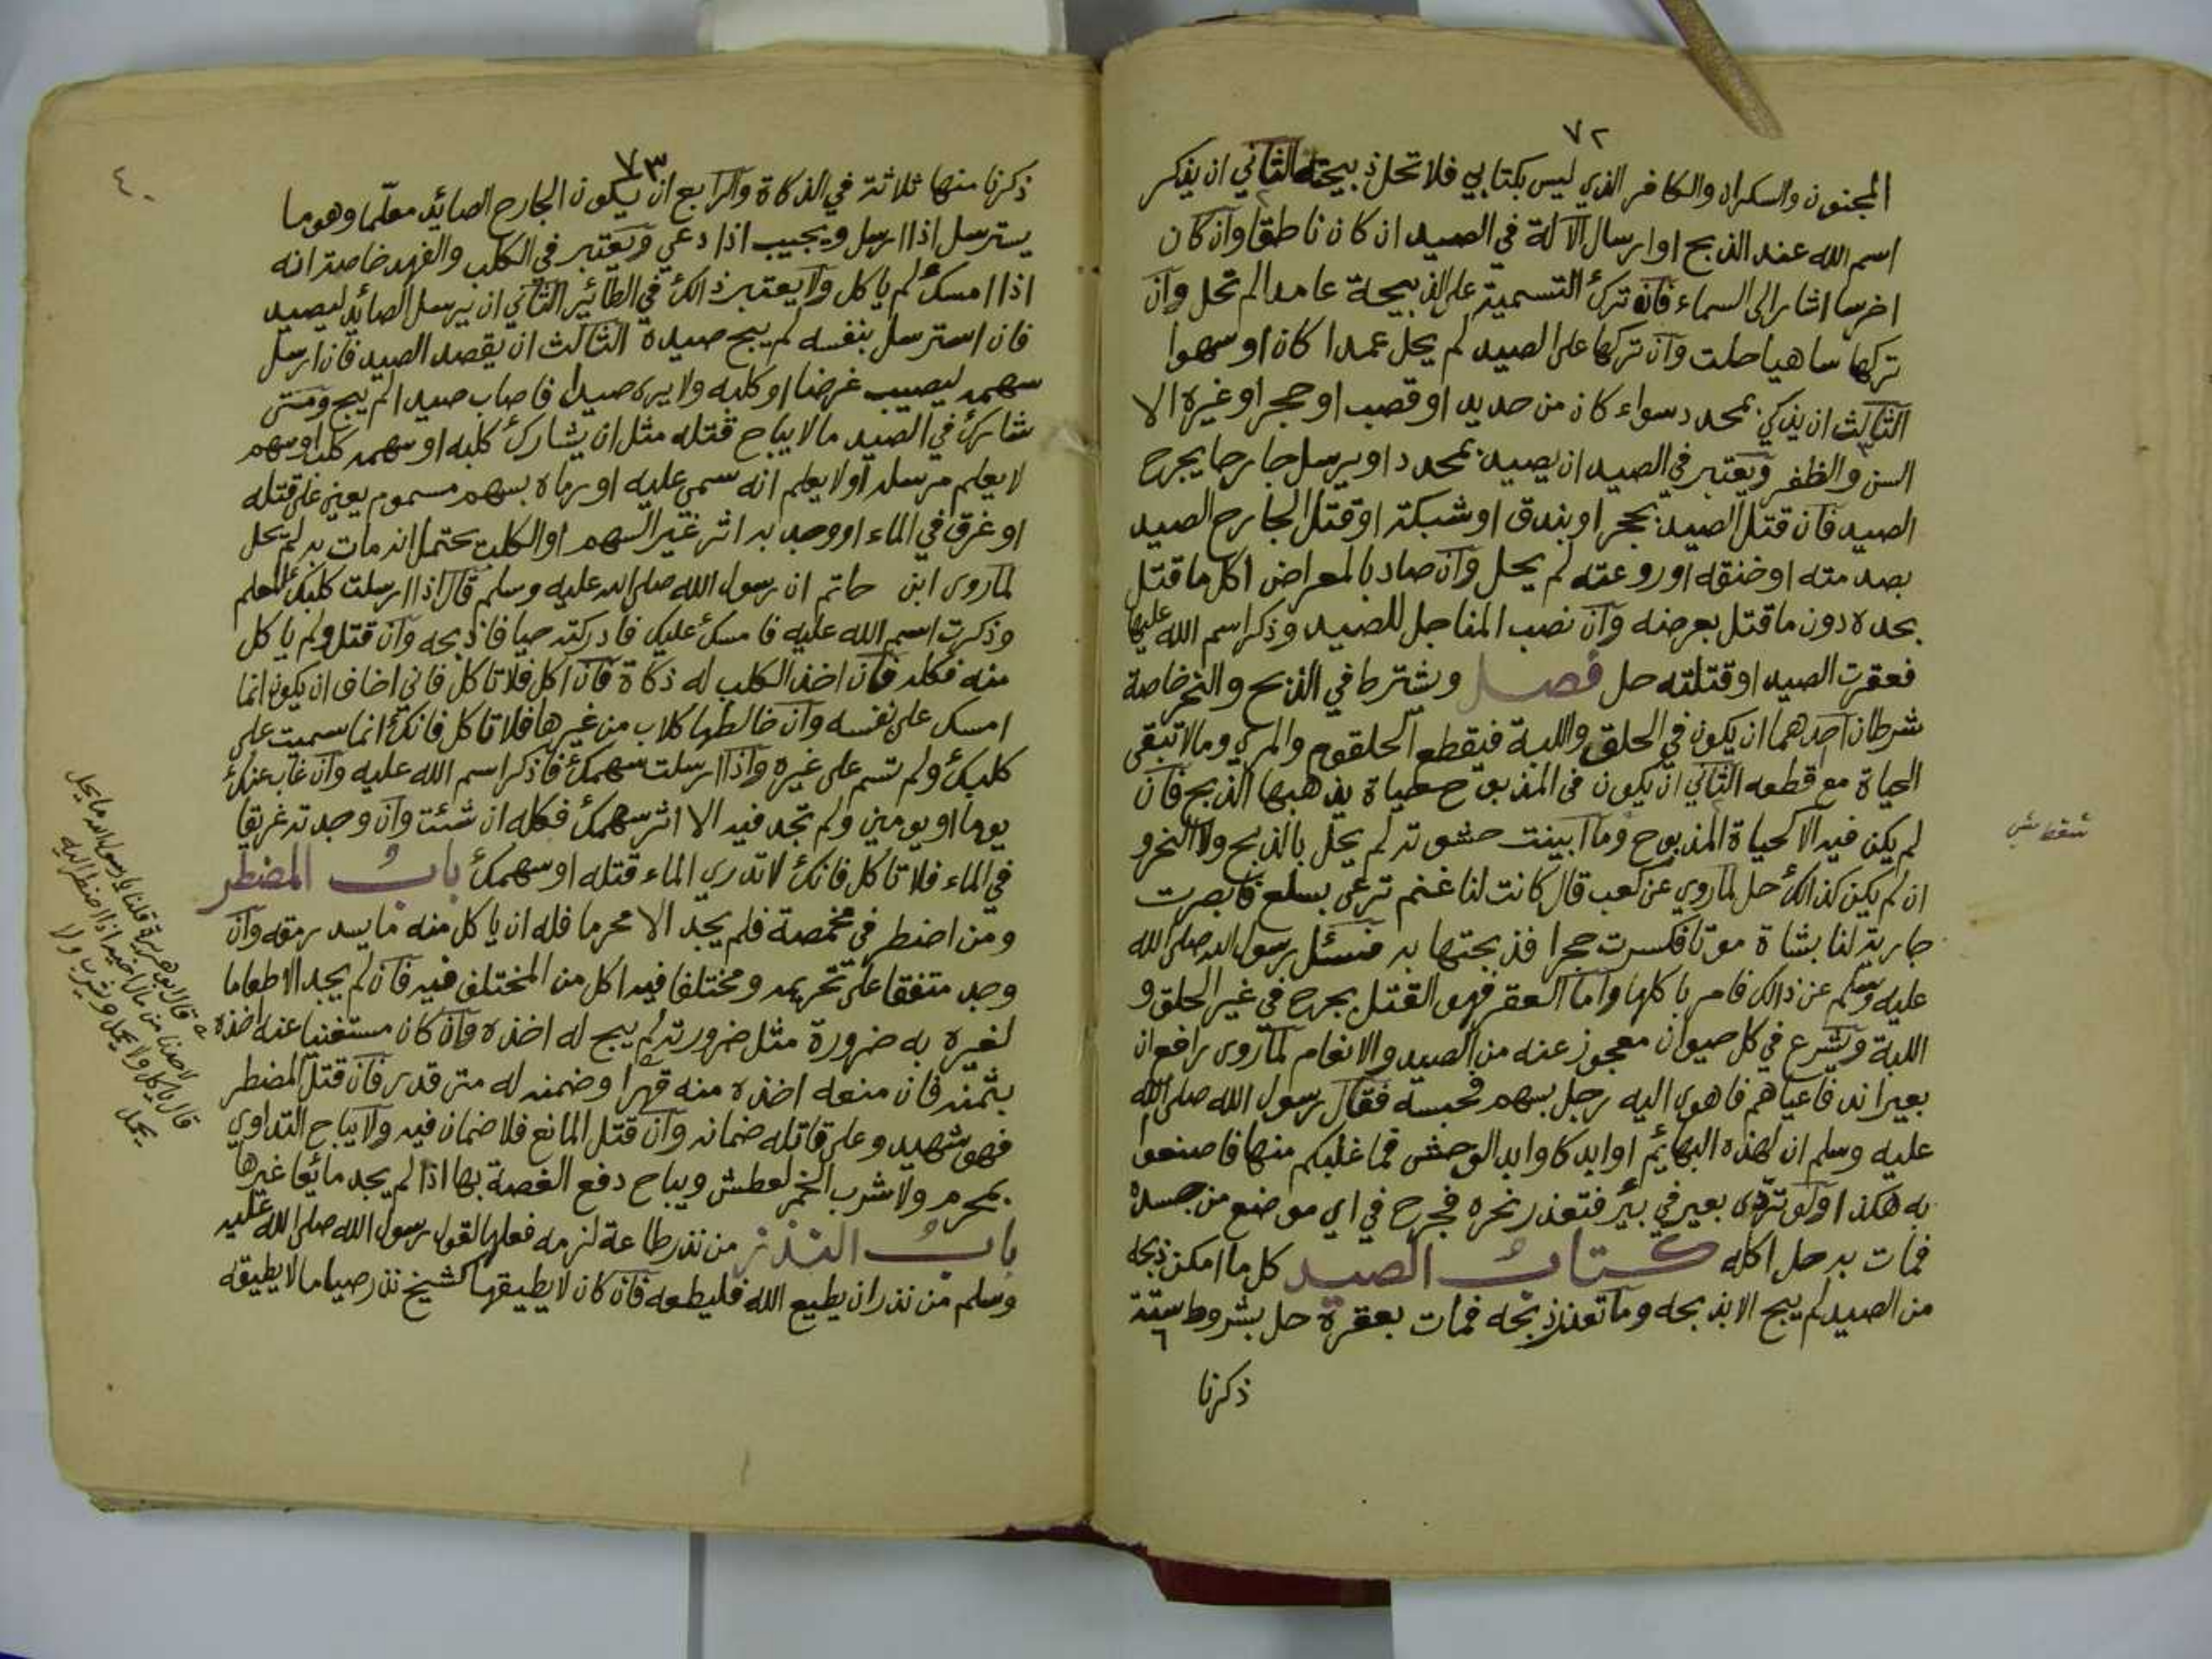 ٧٢
المجنون والسكران والكافر الذي ليس بكتابي فلا تحل ذبيحته الثاني ان يذكر
اسم الله عند الذبح او ارسال الآلة في الصيد ان كان ناطقا وان كان
اخرسا اشار الى السماء فان ترك التسمية على الذبيحة عامدا لم تحل وان
تركها ساهيا حلت وان تركها على الصيد لم يحل عمدا كان او سهوا
الثالث ان يذكي بمحدد سواء كان من حديد او قصب او حجر او غيره الا
السن والظفر ويعتبر في الصيد ان يصيد بمحدد او يرسل جارحا يجرح
الصيد فان قتل الصيد بحجر او بندق او شبكة او قتل الجارح الصيد
بصدمته او خنقه او روعته لم يحل وان صاد بالمعراض اكل ما قتل
بحده دون ما قتل بعرضه وان نصب المناجل للصيد وذكر اسم الله عليها
فعقرت الصيد او قتلته حل فصل وشترط في الذبح والنحر خاصة
شرطان احدهما ان يكون في الحلق واللبة فيقطع الحلقوم والمري وما لا تبقى
الحياة مع قطعه الثاني ان يكون في المذبوح حياة يذهبها الذبح فان
لم يكن فيه الا كحياة المذبوح وما ابينت حشوته لم يحل بالذبح ولا النحر و
ان لم يكن كذالك حل لما روي عن كعب قال كانت لنا غنم ترعى بسلع فابصرت
جارية لنا بشاة موتا فكسرت حجرا فذبحتها به فسئل رسول الله صلى الله
عليه وسلم عن ذالك فامر باكلها واما العقر فهو القتل بجرح في غير الحلق و
اللبة ويشرع في كل حيوان معجوز عنه من الصيد والانعام لما روى رافع ان
بعيرا ند فاعياهم فاهوى اليه رجل بسهم فحبسه فقال رسول الله صلى الله
عليه وسلم ان لهذه البهائم اوابد كاوابد الوحش فما غلبكم منها فاصنعوا
به هكذا ولو تردى بعير في بئر فتعذر نحره فجرح في اي موضع من جسده
فمات به حل اكله كتاب الصيد كل ما امكن ذبحه
من الصيد لم يبح الا بذبحه وما تعذر ذبحه فمات بعقره حل بشروط ستة
٦
ذكرنا
٧٣
٤٠
ذكرنا منها ثلاثة في الذكاة والرابع ان يكون الجارح الصائد معلّما وهو ما
يسترسل اذا ارسل ويجيب اذا دعي ويعتبر في الكلب والفهد خاصة انه
اذا امسك لم ياكل ولا يعتبر ذالك في الطائر الثاني ان يرسل الصائد ليصيد
فان استرسل بنفسه لم يبح صيده الثالث ان يقصد الصيد فان ارسل
سهمه ليصيب غرضا او كلبه ولا يره صيدا فاصاب صيدا لم يبح ومتى
شارك في الصيد ما لا يباح قتله مثل ان يشارك كلبه او سهمه كلب او سهم
لا يعلم مرسله او لا يعلم انه سمى عليه او رماه بسهم مسموم يعين على قتله
او غرق في الماء او وجد به اثر غير السهم او الكلب يحتمل انه مات به لم يحل
لما روى ابن حاتم ان رسول الله صلى الله عليه وسلم قال اذا ارسلت كلبك المعلم
وذكرت اسم الله عليه فامسك عليك فادركته حيا فاذبحه وان قتل ولم ياكل
منه فكله فان اخذ الكلب له ذكاة فان اكل فلا تاكل فاني اخاف ان يكون انما
امسك على نفسه وان خالطها كلاب من غيرها فلا تاكل فانك انما سميت على
كلبك ولم تسم على غيره واذا ارسلت سهمك فاذكر اسم الله عليه وان غاب عنك
يوما او يومين ولم تجد فيه الا اثر سهمك فكله ان شئت وان وجدته غريقا
في الماء فلا تاكل فانك لا تدري الماء قتله او سهمك باب المضطر
ومن اضطر في مخمصة فلم يجد الا محرما فله ان ياكل منه ما يسد رمقه وان
وجد متفقا على تحريمه ومختلفا فيه اكل من المختلف فيه فان لم يجد الا طعاما
لغيره به ضرورة مثل ضرورته لم يبح له اخذه وان كان مستغنيا عنه اخذه
بثمنه فان منعه اخذه منه قهرا وضمنه له متى قدر فان قتل المضطر
فهو شهيد وعلى قاتله ضمانه وان قتل المانع فلا ضمان فيه ولا يباح التداوي
بمحرم ولا شرب الخمر لعطش ويباح دفع الغصة بها اذا لم يجد مائعا غيرها
باب النذر من نذر طاعة لزمه فعلها لقول رسول الله صلى الله عليه
وسلم من نذر ان يطيع الله فليطعه فان كان لا يطيقها كشيخ نذر صياما لا يطيقه
قال ابو هريرة قلنا يا رسول الله ما يحل
لاحدنا من مال اخيه اذا اضطر اليه
قال ياكل ولا يحمل ويشرب ولا
يحمل